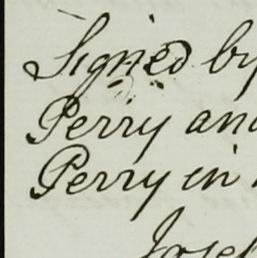 Signed by
Perry and
Perry in
Josep